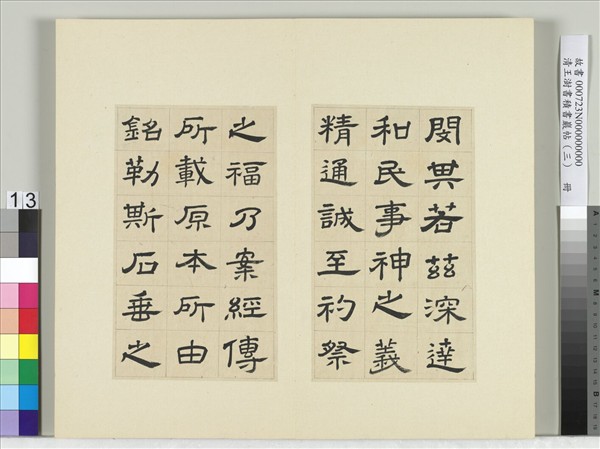 故書000723N000000000
清王澍書積書巖帖(三) 冊
閔其若茲深達
和民事神之義
精通誠至礿祭
之福乃案經傳
所載原本所由
銘勒斯石垂之
13
A
M
B